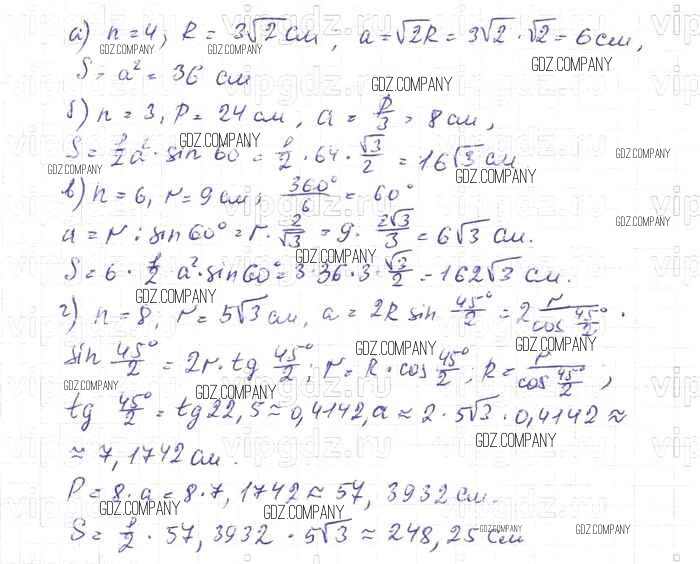 а) n = 4, R = 3√2 см, a = √2R = 3√2 · √2 = 6 см,
S = a² = 36 см
б) n = 3, P = 24 см, a = P/3 = 8 см,
S = 1/2 a² · sin 60 = 1/2 · 64 · √3/2 = 16√3 см
в) n = 6, r = 9 см; 360°/6 = 60°
a = r : sin 60° = r · 2/√3 = 9 · 2√3/3 = 6√3 см.
S = 6 · 1/2 · a² · sin 60° = 3 · 36 · 3 · √3/2 = 162√3 см.
г) n = 8, r = 5√3 см, a = 2R sin 45°/2 = 2 r/cos 45°/2 ·
sin 45°/2 = 2r · tg 45°/2; r = R · cos 45°/2; R = r/cos 45°/2;
tg 45°/2 = tg 22,5 ≈ 0,4142, a ≈ 2 · 5√3 · 0,4142 ≈
≈ 7,1742 см.
P = 8 · a = 8 · 7,1742 ≈ 57,3932 см.
S = 1/2 · 57,3932 · 5√3 ≈ 248,25 см
GDZ.COMPANY
vipgdz.ru